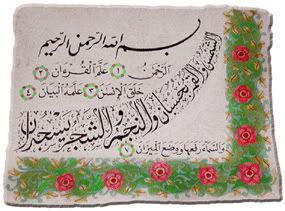 بسم الله الرحمن الرحيم
الرَّحْمَنُ ١ عَلَّمَ القُرْءَانَ ٢
خَلَقَ الإِنْسَنَ ٣ عَلَّمَهُ البَيَانَ ٤
الشمس والقمر بحسبان والنجم والشجر يسجدان
والسماء رفعها ووضع الميزان ٧